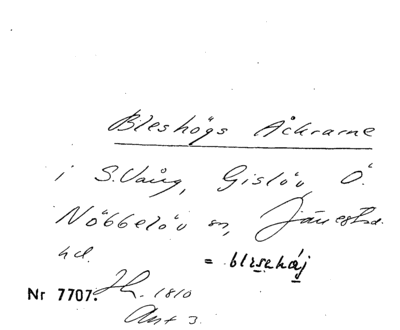 Bleshögs Åckrarne
i S. Vång, Gislöv, Ö.
Nöbbelöv sn, Järrestads
hd.
= bleseháj
Nr 7707. Jh. 1810
Akt 3.